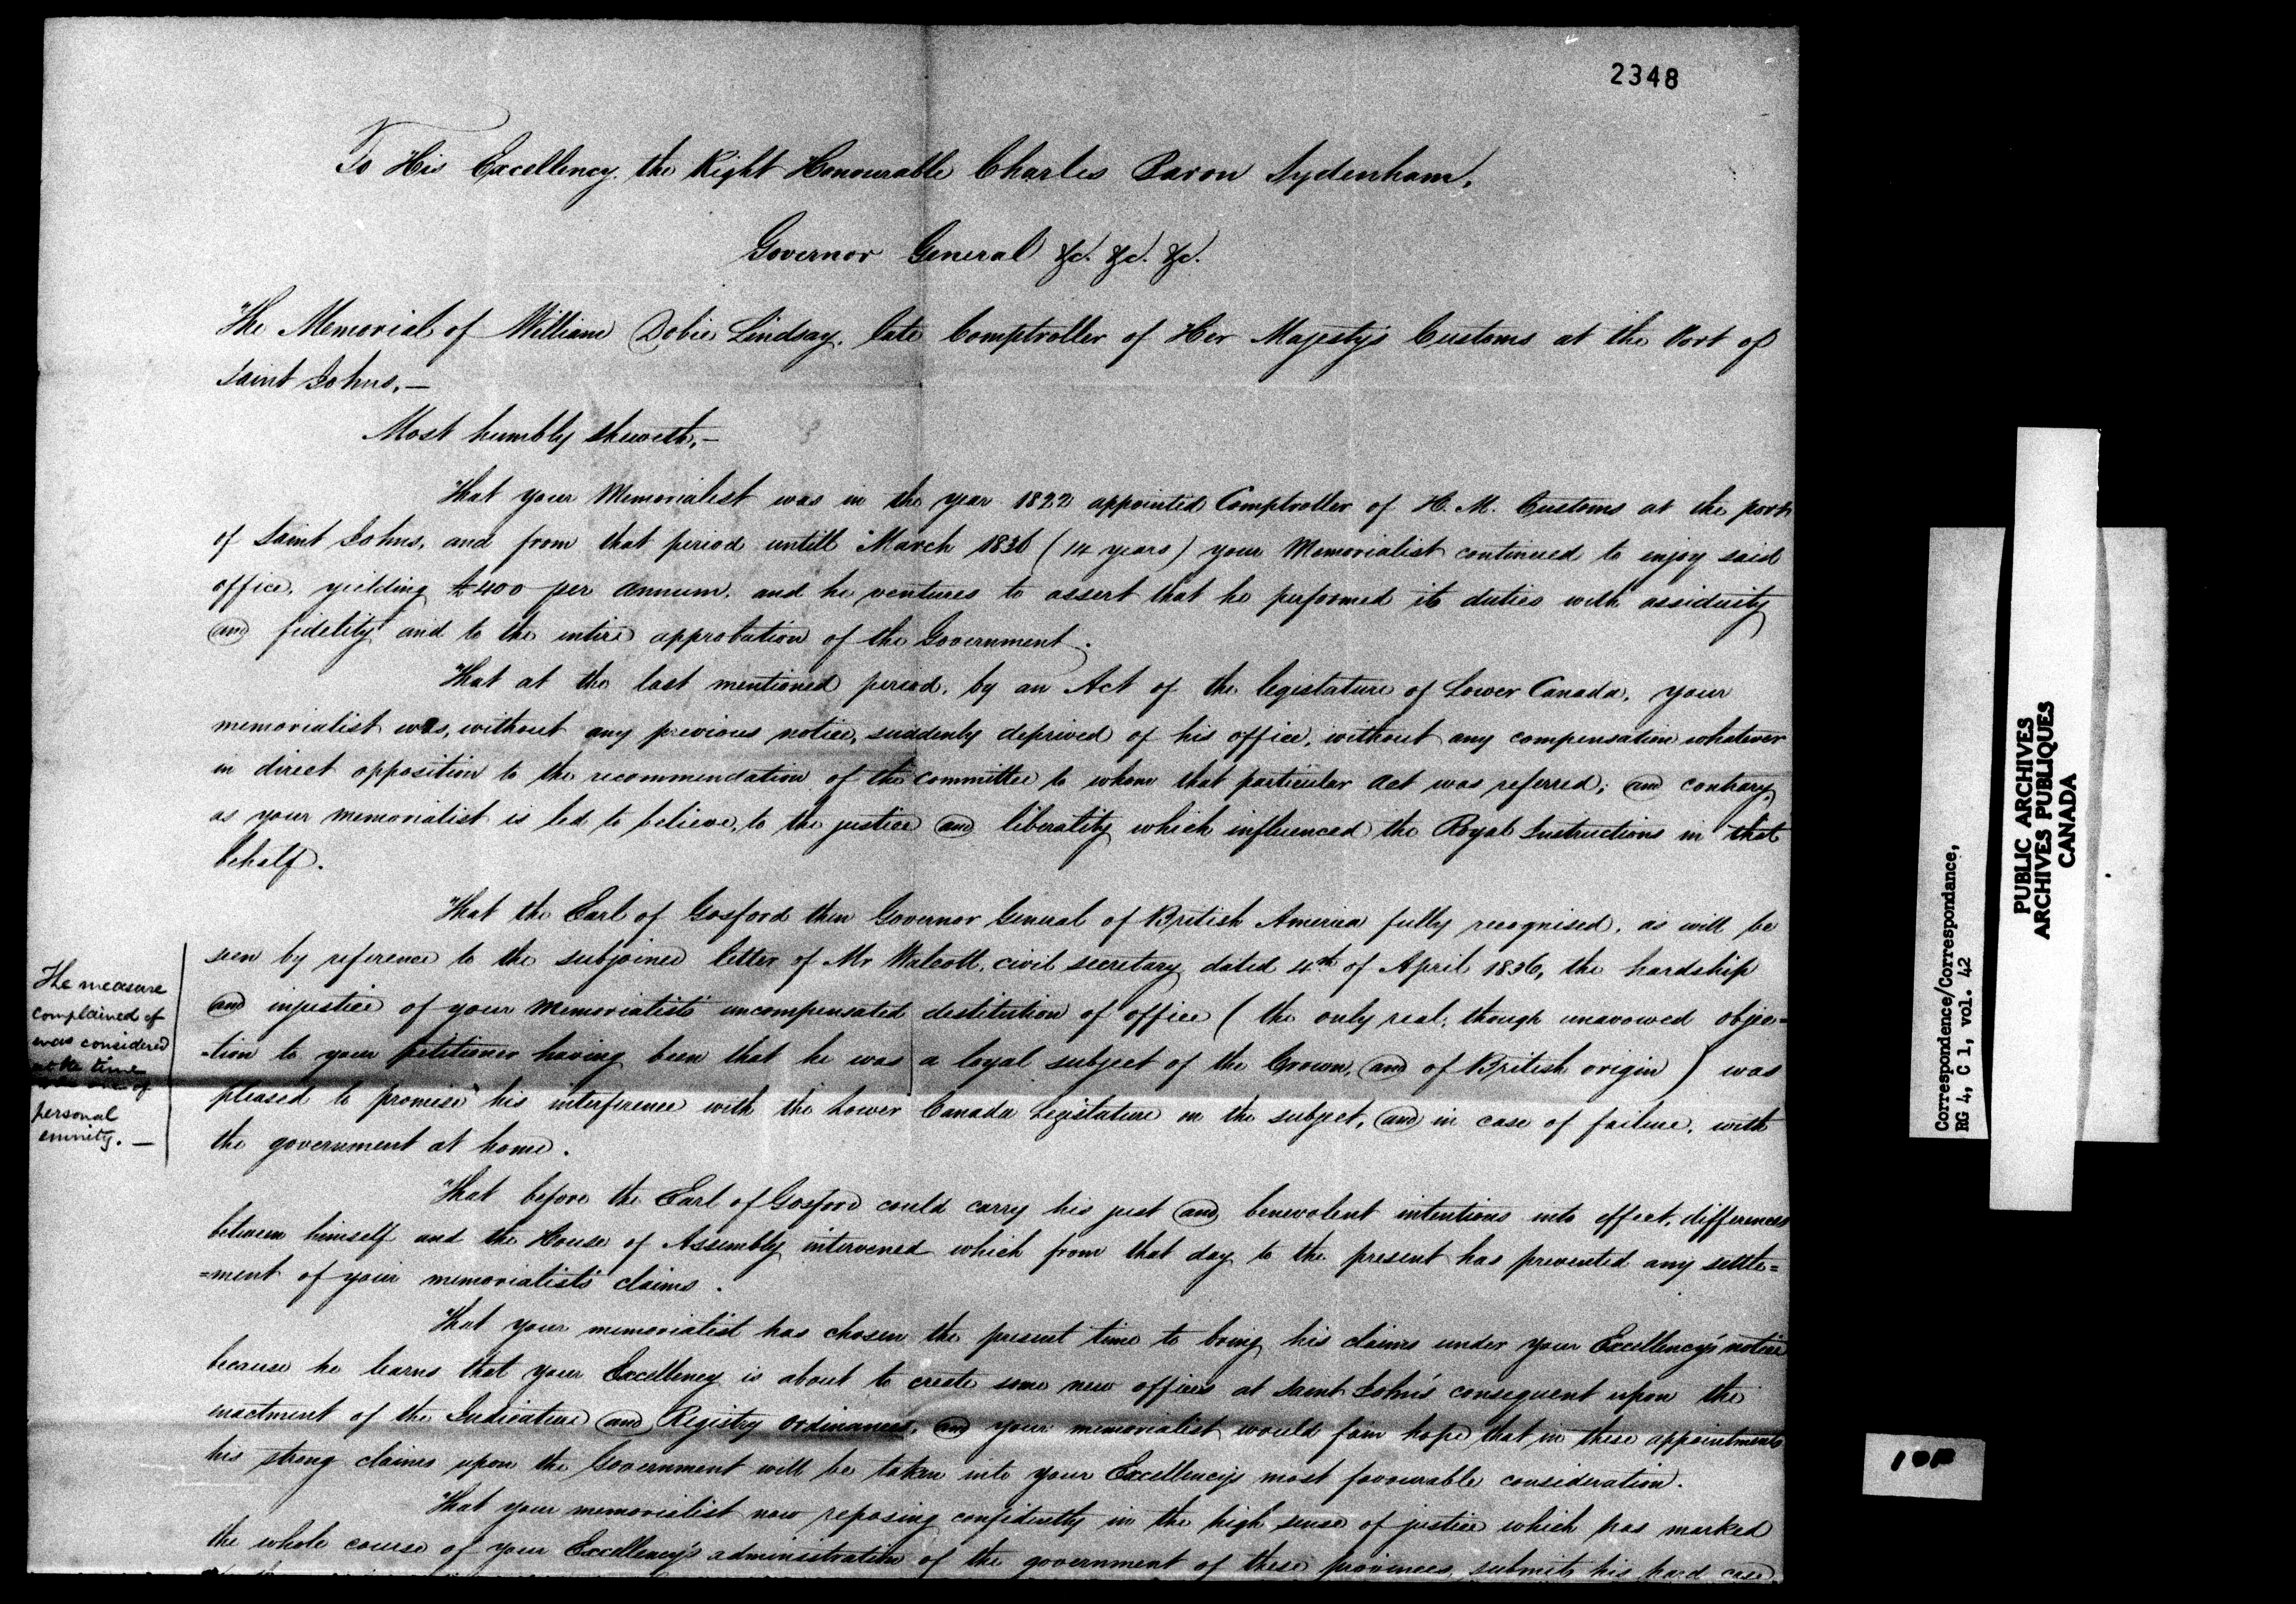 2348
To His Excellency the Right Honourable Charles Baron Sydenham,
Governor General &c. &c. &c.
The Memorial of William Dobie Lindsay, late Comptroller of Her Majesty's Customs at the Port of
Saint Johns,—
Most humbly sheweth,—
That your Memorialist was in the year 1822 appointed Comptroller of H. M. Customs at the port
of Saint Johns, and from that period untill March 1836 (14 years) your Memorialist continued to enjoy said
office, yielding £400 per annum, and he ventures to assert that he performed its duties with assiduity
and fidelity and to the entire approbation of the Government.
That at the last mentioned period, by an Act of the legislature of Lower Canada, your
memorialist was, without any previous notice, suddenly deprived of his office, without any compensation whatever
in direct opposition to the recommendation of the committee to whom that particular Act was referred; and contrary,
as your memorialist is led to believe, to the justice and liberality which influenced the Royal Instructions in that
behalf.
That the Earl of Gosford then Governor General of British America fully recognised, as will be
seen by reference to the subjoined letter of Mr Walcott, civil secretary dated 4th of April 1836, the hardship
and injustice of your Memorialist's uncompensated destitution of office (the only real, though unavowed objec=
=tion to your petitioner having been that he was a loyal subject of the Crown, and of British origin) was
pleased to promise his interference with the Lower Canada Legislature on the subject, and in case of failure, with
the government at home.
The measure
complained of
was considered
at the time
one of
personal
enmity.—
That before the Earl of Gosford could carry his just and benevolent intentions into effect, differences
between himself and the House of Assembly intervened which from that day to the present has prevented any settle=
=ment of your memorialist's claims.
That your memorialist has chosen the present time to bring his claims under your Excellency's notice
because he learns that your Excellency is about to create some new offices at Saint John's consequent upon the
enactment of the Judicature and Registry ordinances, and your memorialist would fain hope that in these appointments
his strong claims upon the Government will be taken into your Excellency's most favourable consideration.
That your memorialist now reposing confidently in the high sense of justice which has marked
the whole course of your Excellency's administration of the government of these provinces, submits his hard case
Correspondence/Correspondance,
RG 4, C 1, vol. 42
PUBLIC ARCHIVES
ARCHIVES PUBLIQUES
CANADA